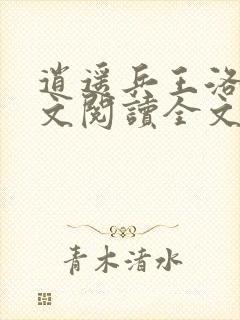 逍遥兵王洛
文閱讀全文
青木清水